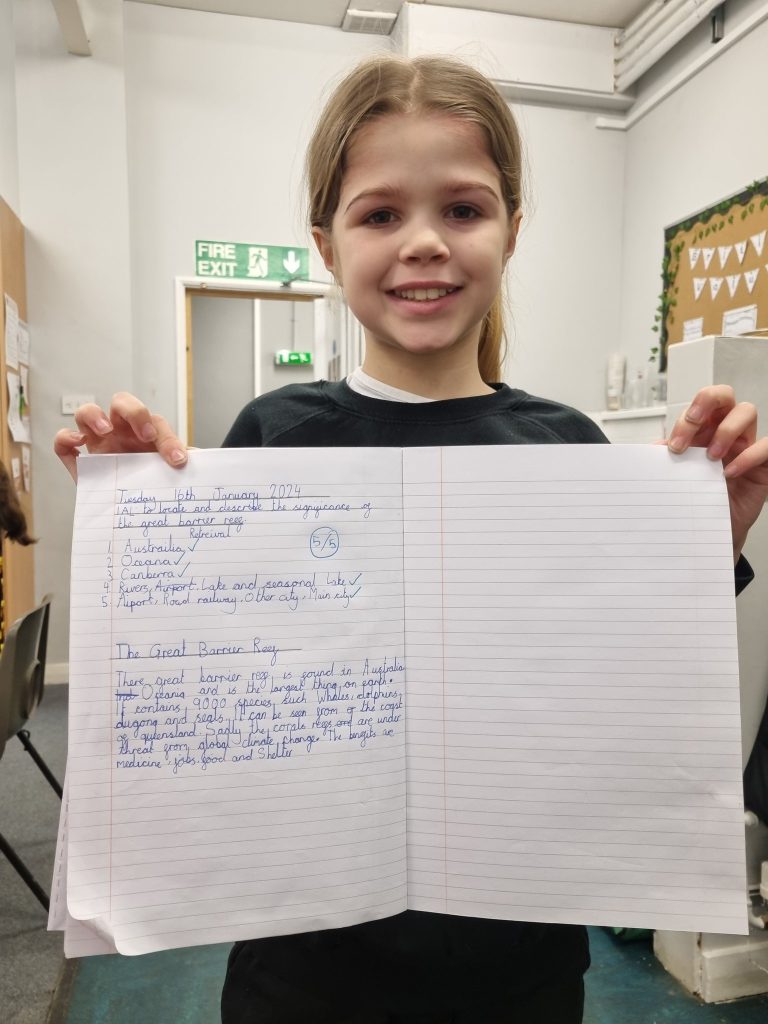 FIRE
EXIT
Tuesday 16th January 2024
IAL to locate and describe the significance of
the great barrier reef.
Retreival
1. Austrailia ✓
5/5
2. Oceana ✓
3. Canberra ✓
4. Rivers, Airport, Lake and seasonal Lake ✓
5. Airport, Road railway, Other city, Main city ✓
The Great Barrier Reef
There great barrier reef is found in Australia
Oceania and is the largest thing on earth.
It contains 9000 species such whales, dolphins,
dugong and seals. It can be seen from of the coast
of queensland. Sadly the corals reefs are under
threat from global climate change. The benefits are
medicine, jobs, food and Shelter